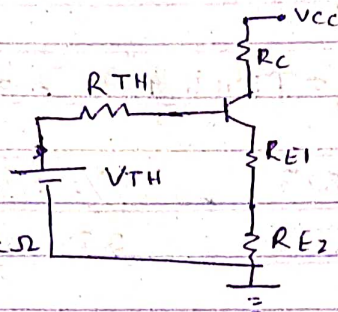 VCC
RC
RTH
RE1
VTH
RE2
Ω